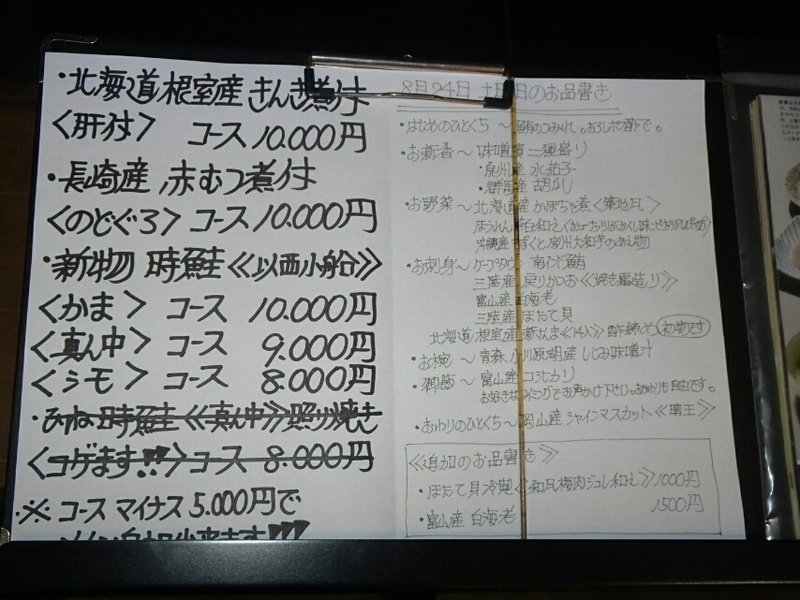 ・北海道根室産 きんき煮付
〈肝付〉 コース 10.000円
・長崎産 赤むつ煮付
〈のどぐろ〉 コース 10.000円
・新物 時鮭 《以西小船》
〈かま〉 コース 10.000円
〈真ん中〉 コース 9.000円
〈シモ〉 コース 8.000円
時鮭《真ん中》照り焼き
〈コゲます!!〉コース 8.000円
※ コース マイナス 5.000円で
8月24日 土曜日のお品書き
・はじめのひとくち～ つみれ。おろしポン酢で。
・お新香～ 味噌漬 三種盛り
・泉州産 水茄子
・群馬産 胡瓜
・お野菜～ 北海道産 かぼちゃ煮
・お刺身～ ケープタウン 南インド鮪
三陸産 戻りかつお《焼き霜造り》
富山産 白海老
三陸産 ほたて貝
北海道根室産 初物です
・お椀～ 青森 小川原湖産 しじみ味噌汁
・御飯～ 富山産 コシヒカリ
お好きなタイミングでお声かけ下さい。おかわりも自由です。
・おわりのひとくち～ 岡山産 シャインマスカット《晴王》
《追加のお品書き》
・ほたて貝冷製《和風梅肉ジュレ和え》1000円
・富山産 白海老 1500円